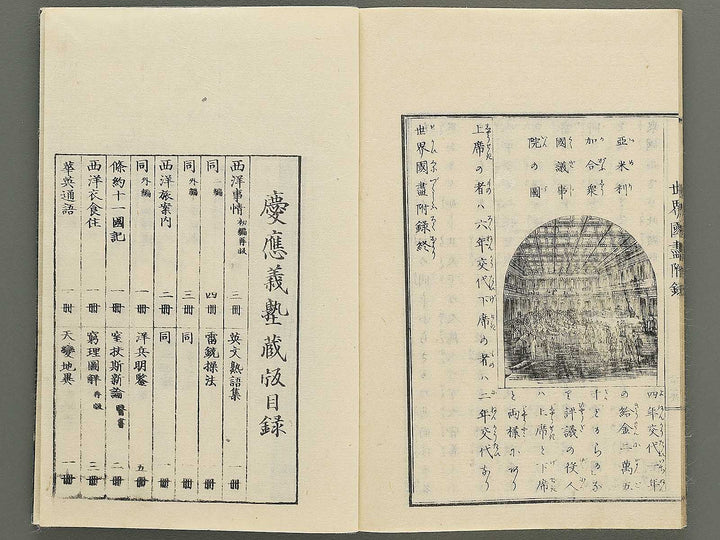 世界國盡附録
亞米利
加合衆
國議事
院の圖
四年交代一年
の給金二萬五
千どるらるなり
評議の役人
ハ上席と下席
と両様にあり
上席の者ハ六年交代下席の者ハ二年交代あり
世界國盡附録終
慶應義塾蔵版目録
西洋事情 初編再版 三冊
同 二編 四冊
同 外編 三冊
西洋旅案内 二冊
同 外編 一冊
條約十一國記 一冊
西洋衣食住 一冊
華英通語 一冊
英文熟語集 一冊
雷銃操法 一冊
同
同 一冊
洋兵明鑒 五冊
窒扶斯新論 醫書 二冊
窮理圖解 再版 三冊
天變地異 一冊